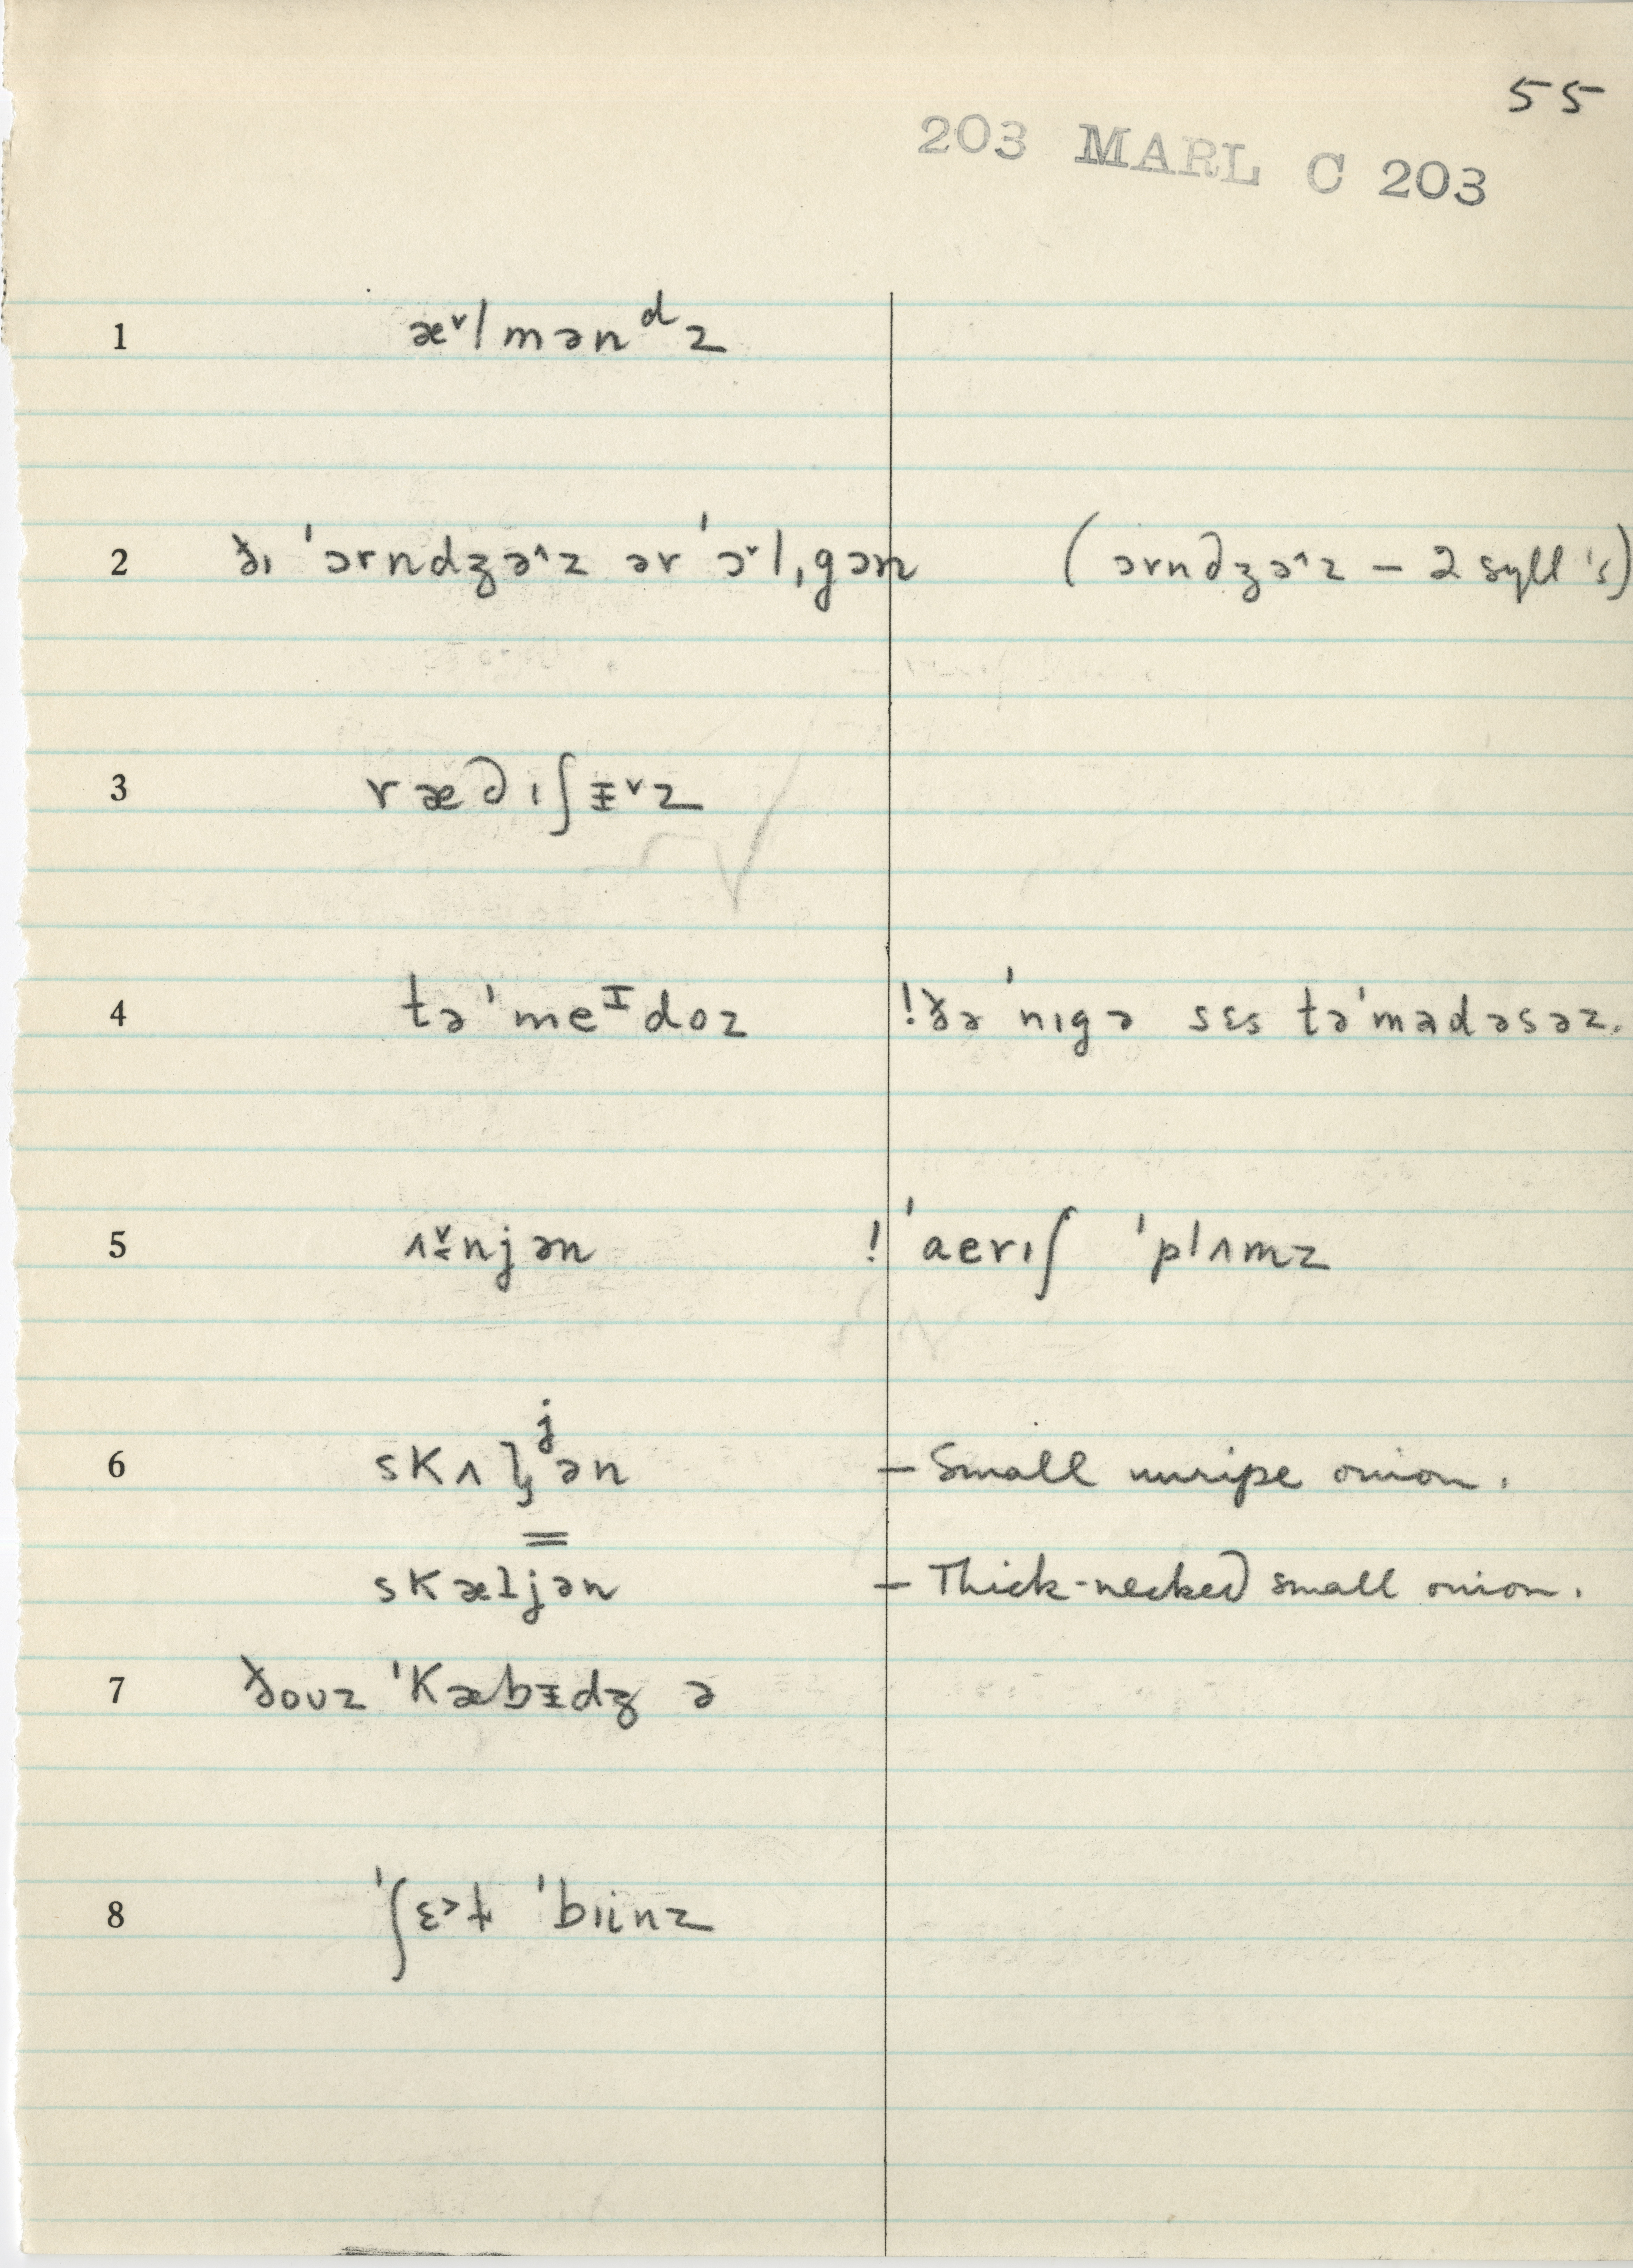 55
203 MARL C 203
1 æ˅lmənᵈz
2 ðɪ ˈɔrndʒə˄z ər ˈɔ˅lˌgɔn (ɔrndʒə˄z – 2 syll's)
3 rædɪʃᵻ˅z
4 təˈmeᴵdoz !ðə ˈnɪgə sɛs təˈmadəsəz.
5 ʌ̬njən ! ˈaerɪʃ ˈplʌmz
6 skʌɫʲən – Small unripe onion.
=
skæɫjən – Thick-necked small onion.
7 ðoʊz ˈkæbᵻdʒ ə
8 ˈʃɛ˃ɫ ˈbɪinz